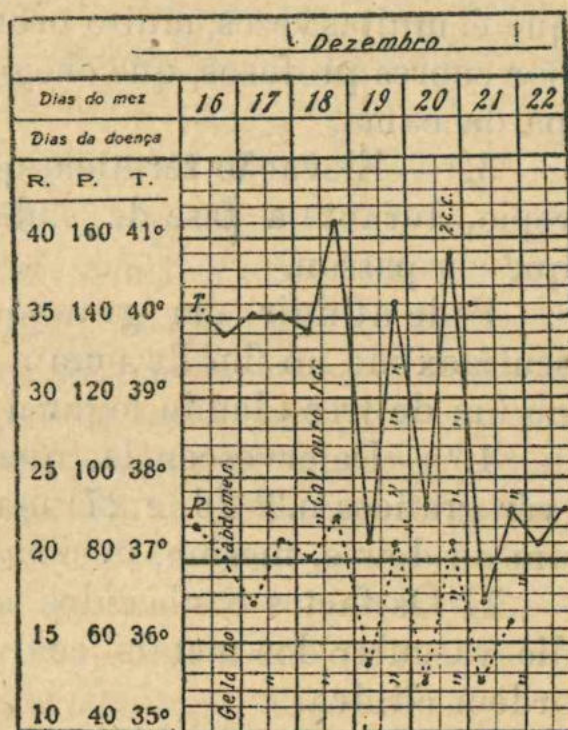 Dezembro
Dias do mez 16 17 18 19 20 21 22
Dias da doença
R. P. T.
40 160 41º
35 140 40º
30 120 39º
25 100 38º
20 80 37º
15 60 36º
10 40 35º
T.
P
Gelo no abdomen
2 c.c.